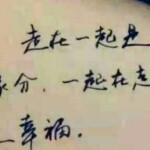 走在一起是
缘分，一起在走
幸福.